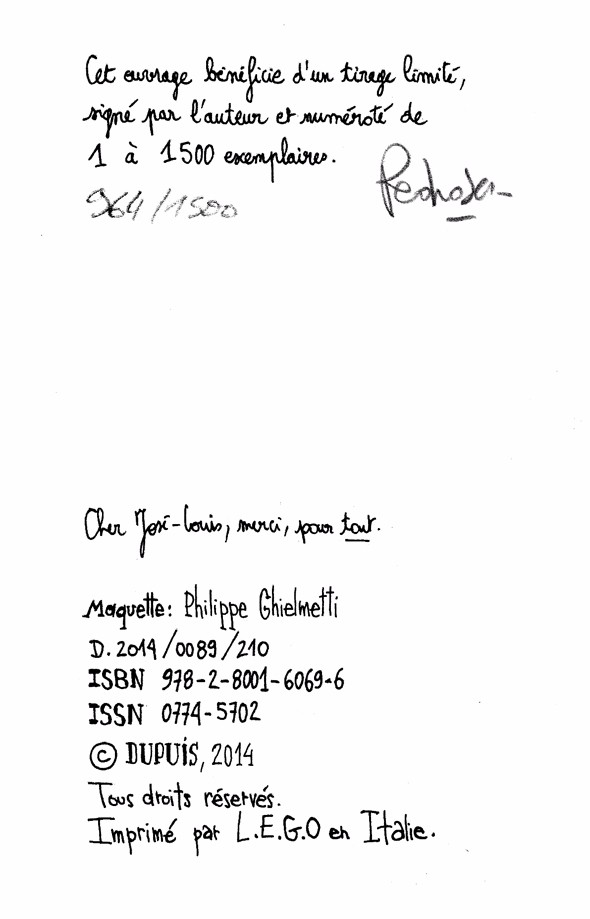 Cet ouvrage bénéficie d'un tirage limité,
signé par l'auteur et numéroté de
1 à 1500 exemplaires.
964/1500 Pedrosa
Cher José-Louis, merci, pour tout.
Maquette: Philippe Ghielmetti
D. 2014/0089/210
ISBN 978-2-8001-6069-6
ISSN 0774-5702
© DUPUIS, 2014
Tous droits réservés.
Imprimé par L.E.G.O en Italie.